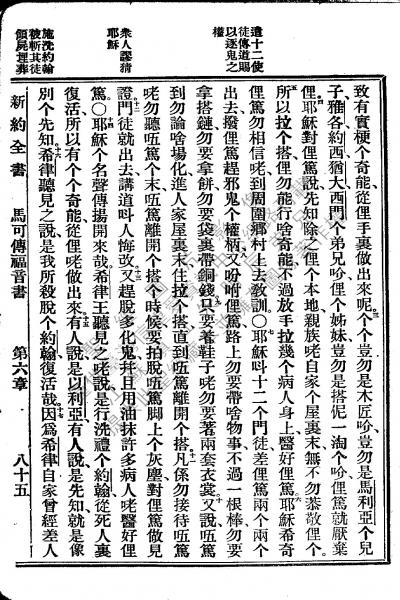 遣十二使
徒傳道賜
以逐鬼之
權
衆人謬猜
耶穌
施洗約翰
被斬其徒
領屍埋葬
致有實梗个奇能從俚手裏做出來呢个个豈勿是木匠吩豈勿是馬利亞个兒
子雅各約西猶大西門个弟兄吩俚个姊妹豈勿是搭伲一淘个吩俚篤就厭棄
俚耶穌對俚篤說先知除之俚个本地親族咾自家个屋裏末無不勿恭敬俚个
所以拉个搭俚勿能行啥奇能不過放手拉幾个病人身上醫好俚篤耶穌希奇
俚篤勿相信咾到周圍鄉村上去教訓〇耶穌呌十二个門徒差俚篤兩个兩个
出去撥俚篤趕邪鬼个權柄又吩咐俚篤路上勿要帶啥物事不過一根棒勿要
拿搭鏈勿要拿餅勿要袋裏帶銅錢只要着鞋子咾勿要著兩套衣裳又說伍篤
到勿論啥場化進人家屋裏末住拉个搭直到伍篤離開个搭凡係勿接待伍篤
咾勿聽伍篤个末伍篤離開个搭个時候要拍脫伍篤脚上个灰塵對俚篤做見
證門徒就出去講道呌人悔改又趕脫多化鬼并且用油抹許多病人咾醫好俚
篤〇耶穌个名聲傳揚開來哉希律王聽見之咾說是行洗禮个約翰從死人裏
復活所以有个个奇能從俚咾做出來有人說是以利亞有人說是先知就是像
別个先知希律聽見之說是我所殺脫个約翰復活哉因爲希律自家曾經差人
新約全書 馬可傳福音書 第六章 八十五